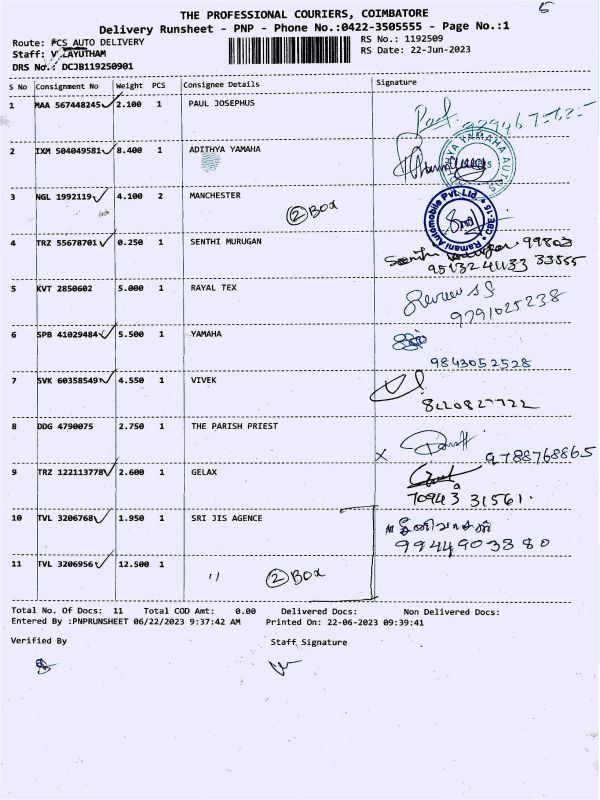 THE PROFESSIONAL COURIERS, COIMBATORE
5
Delivery Runsheet - PNP - Phone No.:0422-3505555 - Page No.:1
Route: PCS AUTO DELIVERY
RS No.: 1192509
Staff: V LAYUTHAM
RS Date: 22-Jun-2023
DRS No.: DCJB119250901
S No Consignment No Weight PCS Consignee Details Signature
1 MAA 567448245 2.100 1 PAUL JOSEPHUS
2 IXM 504049581 8.400 1 ADITHYA YAMAHA
3 NGL 1992119 4.100 2 MANCHESTER
② Box
Ramani Automobile Pvt. Ltd. CBE-15
4 TRZ 55678701 0.250 1 SENTHI MURUGAN
5 KVT 2850602 5.000 1 RAYAL TEX
9791025238
6 SPB 41029484 5.500 1 YAMAHA
9843052528
7 SVK 60358549 4.550 1 VIVEK
8220827722
8 DDG 4790075 2.750 1 THE PARISH PRIEST
X 9788768865
9 TRZ 122113778 2.600 1 GELAX
70943 31561.
10 TVL 3206768 1.950 1 SRI JIS AGENCE
9944903880
11 TVL 3206956 12.500 1 " ② Box
Total No. Of Docs: 11 Total COD Amt: 0.00 Delivered Docs: Non Delivered Docs:
Entered By :PNPRUNSHEET 06/22/2023 9:37:42 AM Printed On: 22-06-2023 09:39:41
Verified By Staff Signature